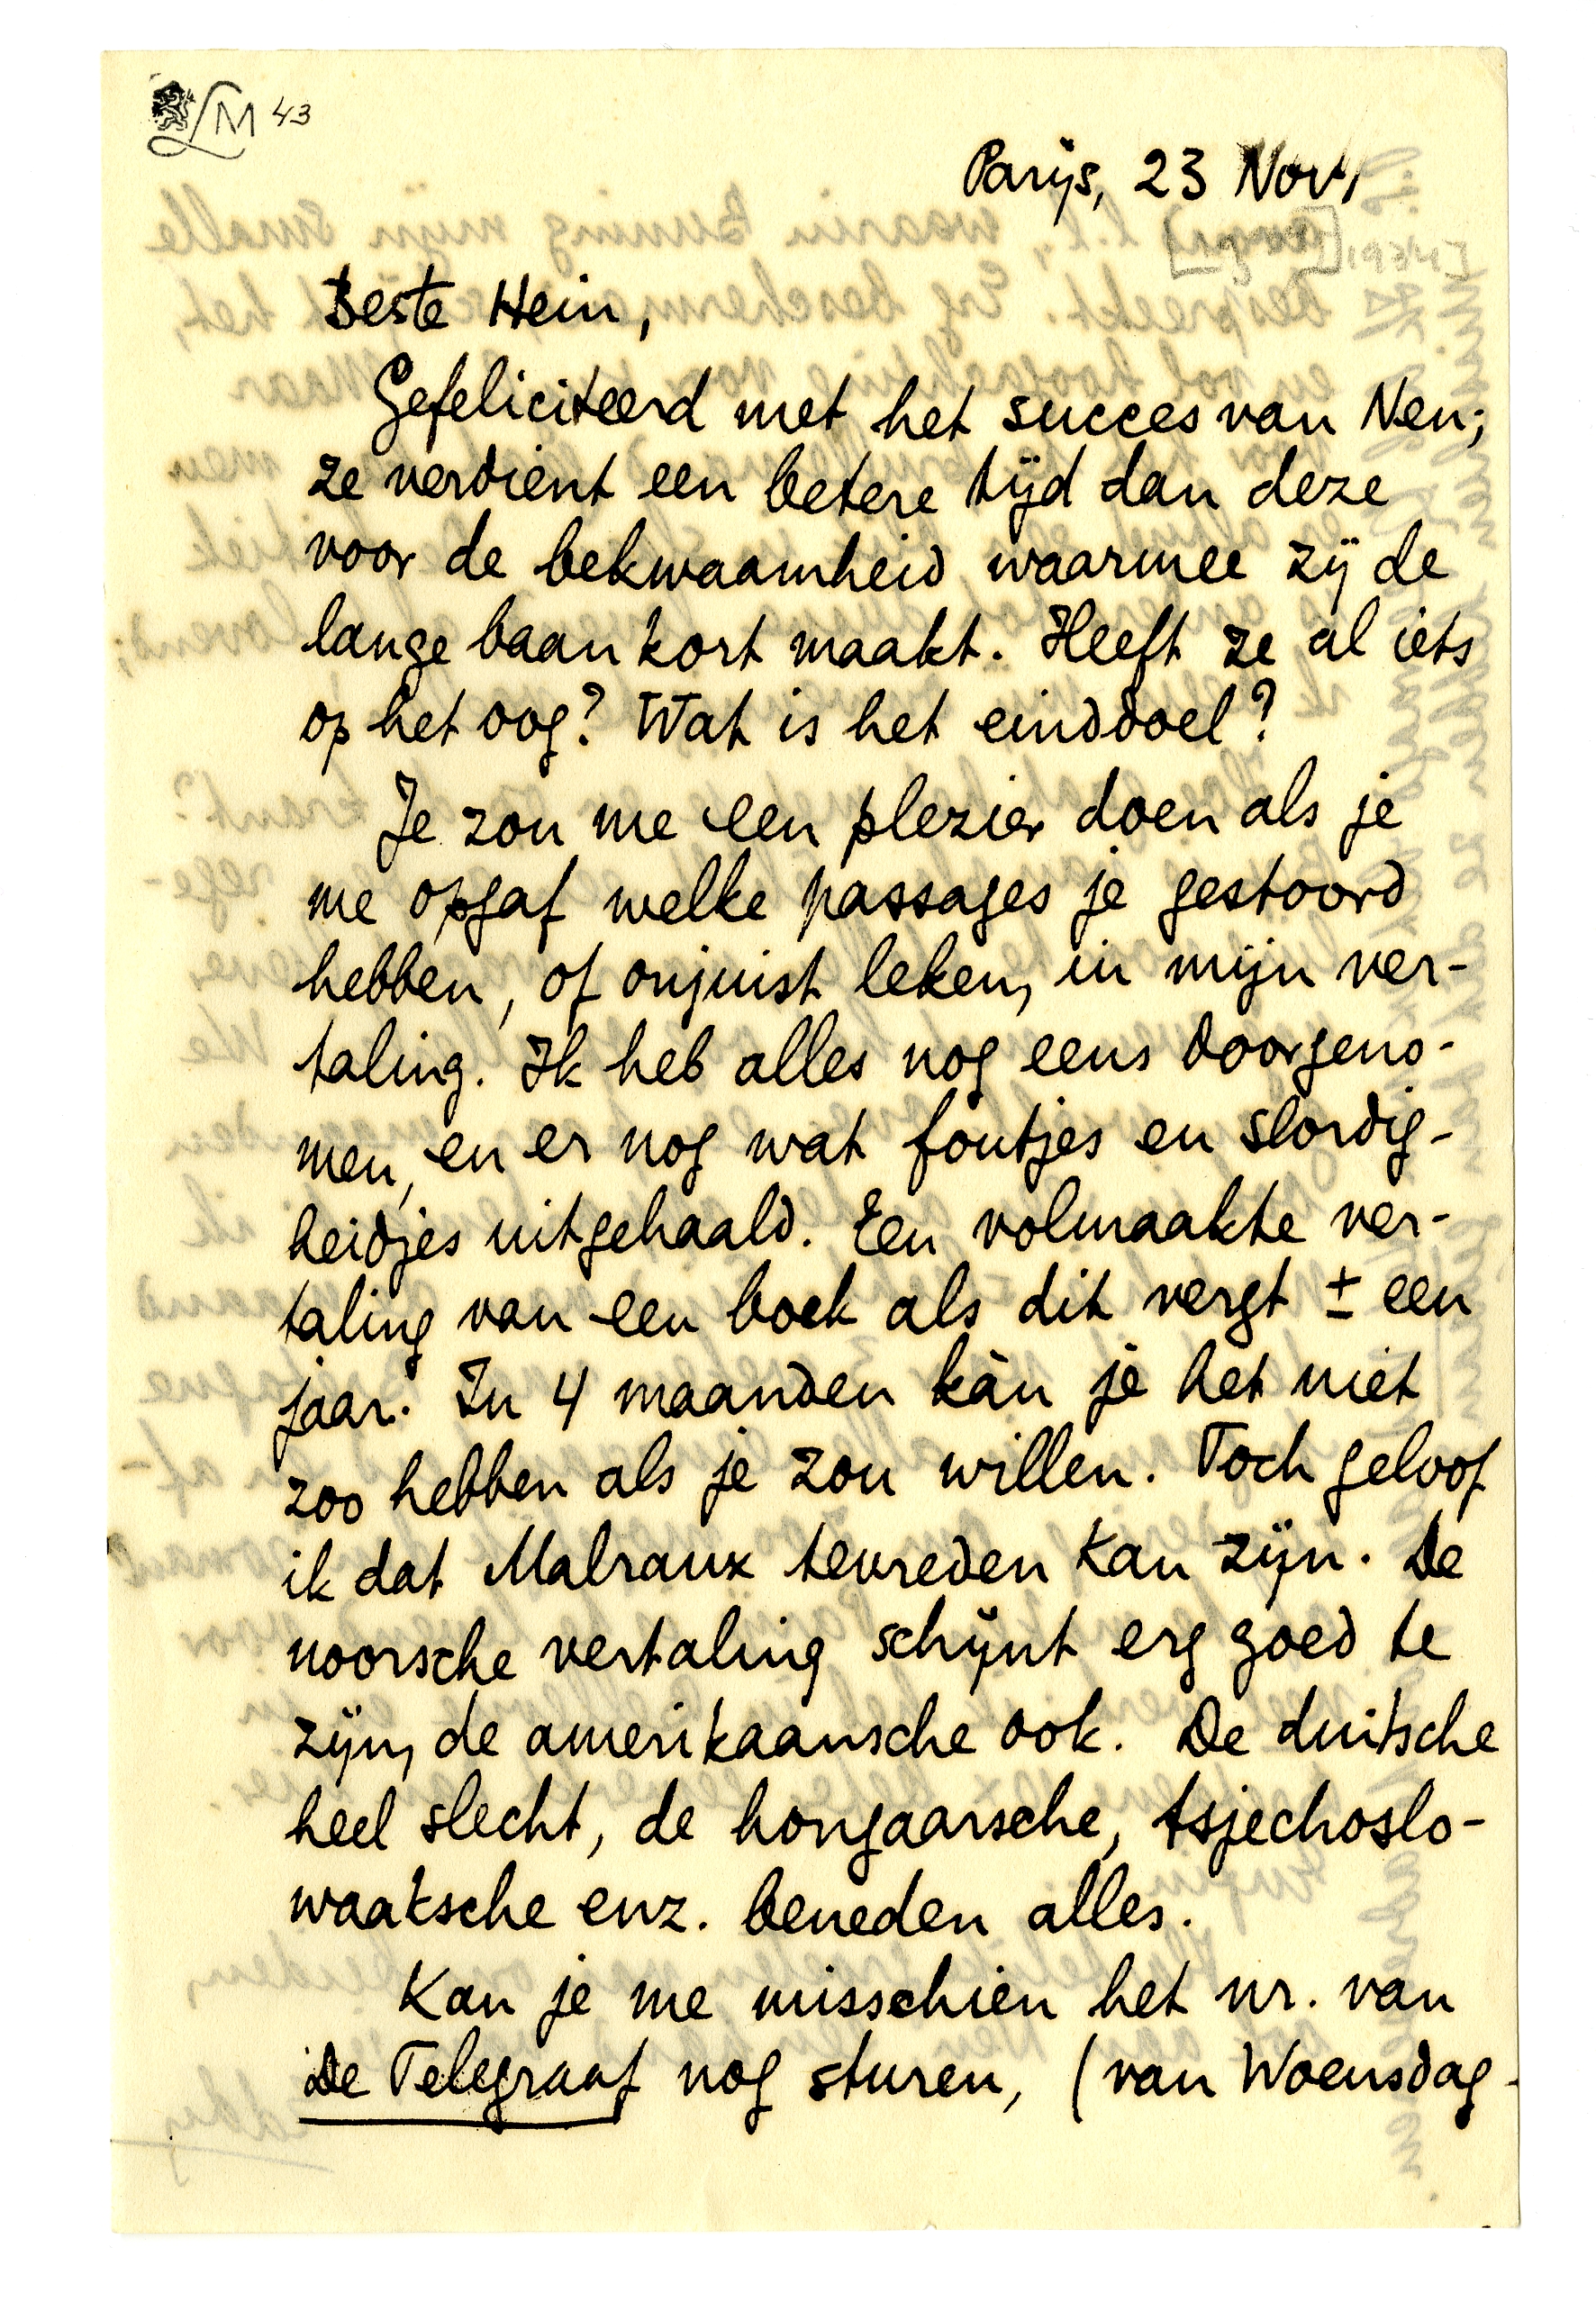 LM 43
Parijs, 23 Nov.
Beste Hein,
Gefeliciteerd met het succes van Nen;
ze verdient een betere tijd dan deze
voor de bekwaamheid waarmee zij de
lange baan kort maakt. Heeft ze al iets
op het oog? Wat is het einddoel?
Je zou me een plezier doen als je
me opgaf welke passages je gestoord
hebben, of onjuist leken, in mijn ver-
taling. Ik heb alles nog eens doorgeno-
men, en er nog wat foutjes en slordig-
heidjes uitgehaald. Een volmaakte ver-
taling van een boek als dit vergt ± een
jaar. In 4 maanden kàn je het niet
zoo hebben als je zou willen. Toch geloof
ik dat Malraux tevreden kan zijn. De
noorsche vertaling schijnt erg goed te
zijn, de amerikaansche ook. De duitsche
heel slecht, de hongaarsche, tsjechoslo-
waaksche enz. beneden alles.
Kan je me misschien het nr. van
De Telegraaf nog sturen, (van Woensdag-